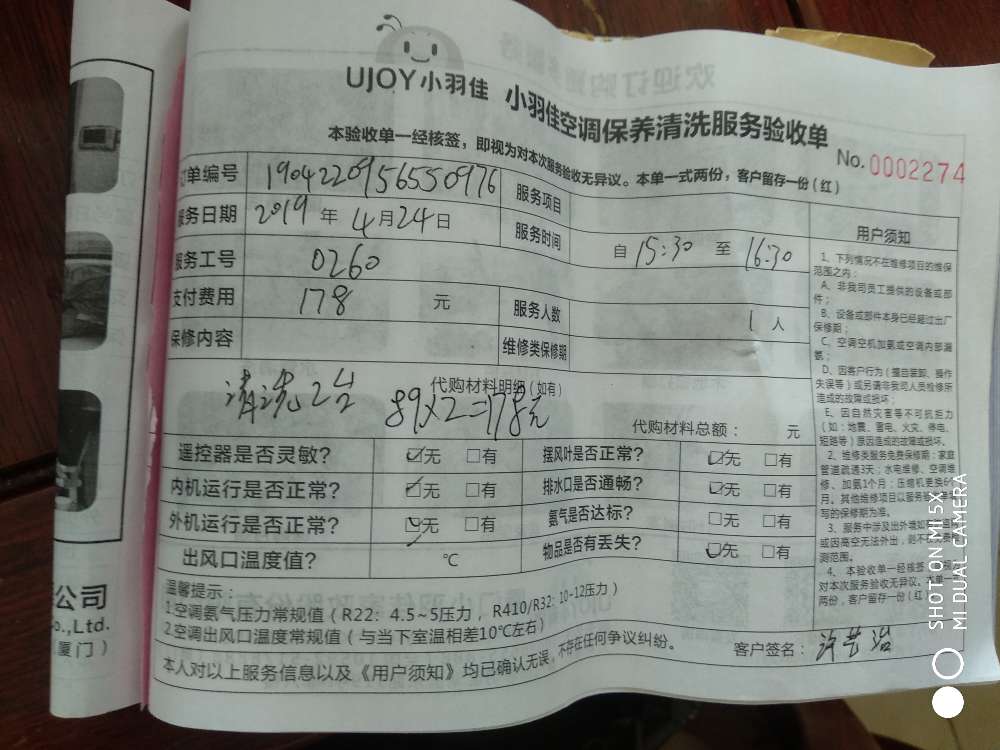 UJOY小羽佳 小羽佳空调保养清洗服务验收单
本验收单一经核签，即视为对本次服务验收无异议。本单一式两份，客户留存一份（红）
No.0002274
订单编号 1904220956550976 服务项目
服务日期 2019年4月24日 服务时间 自15:30至16:30
服务工号 0260
支付费用 178元 服务人数 1人
保修内容 维修类保修期
代购材料明细（如有）
清洗2台 89×2=178元
代购材料总额： 元
遥控器是否灵敏？ ☑无 □有 摆风叶是否正常？ ☑无 □有
内机运行是否正常？ ☑无 □有 排水口是否通畅？ ☑无 □有
外机运行是否正常？ ☑无 □有 氨气是否达标？ □无 □有
出风口温度值？ ℃ 物品是否有丢失？ ☑无 □有
温馨提示：
1.空调氨气压力常规值（R22：4.5~5压力，R410/R32：10-12压力）
2.空调出风口温度常规值（与当下室温相差10℃左右）
本人对以上服务信息以及《用户须知》均已确认无误，不存在任何争议纠纷。
客户签名：
用户须知
1、下列情况不在维修项目的维保
范围之内：
A、非我司员工提供的设备或部
件；
B、设备或部件本身已经超过出厂
保修期；
C、空调空机加氨或空调内部漏
氨；
D、因客户行为（擅自装卸、操作
失误等）或另请非我司人员检修所
造成的故障或损坏；
E、因自然灾害等不可抗拒力
（如：地震、雷电、火灾、停电、
短路等）原因造成的故障或损坏。
2、维修类服务免费保修期：家庭
管道疏通3天；水电维修、空调维
修、加氨1个月；压缩机更换6个
月。其他维修项目以服务
写的保修期为准。
3、服务中涉及出外墙
或因高空无法外出，则不
测范围。
4、本验收单一经核签
对本次服务验收无异议。本单一
两份，客户留存一份（红）
公司
o.,Ltd.
厦门）
SHOT ON MI 5X
MI DUAL CAMERA